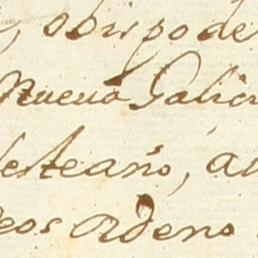 obispo de
Nueva Galici
esteaño, au
eos ordeno